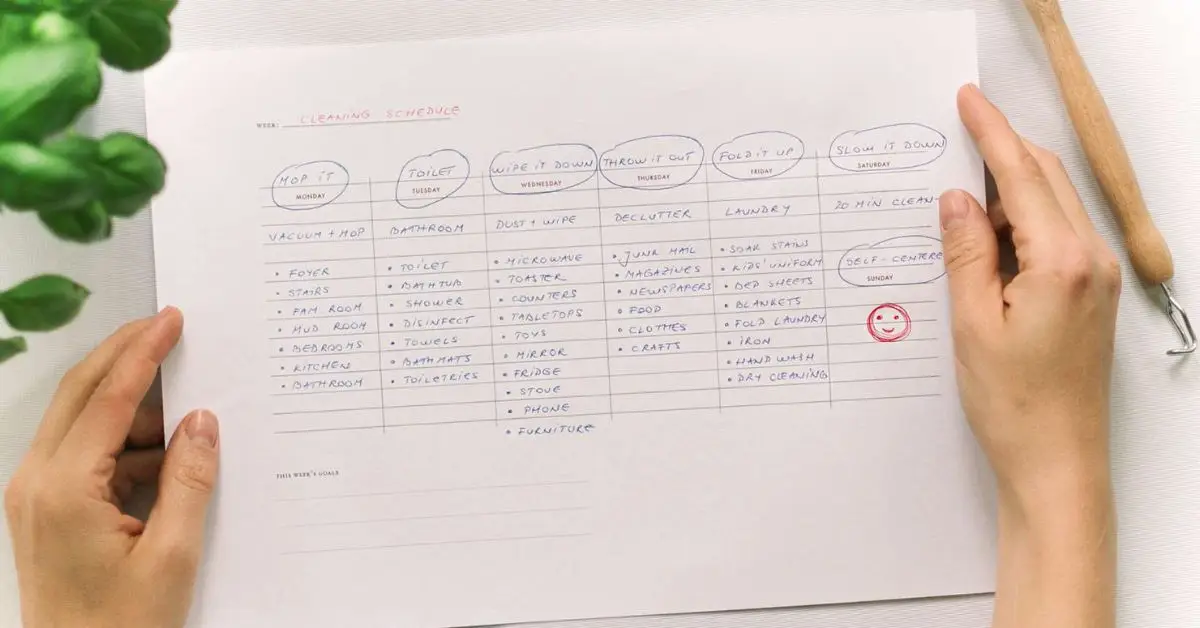 WEEK: CLEANING SCHEDULE
MOP IT
MONDAY
VACUUM + MOP
• FOYER
• STAIRS
• FAM ROOM
• MUD ROOM
• BEDROOMS
• KITCHEN
• BATHROOM
TOILET
TUESDAY
BATHROOM
• TOILET
• BATHTUB
• SHOWER
• DISINFECT
• TOWELS
• BATHMATS
• TOILETRIES
WIPE IT DOWN
WEDNESDAY
DUST + WIPE
• MICROWAVE
• TOASTER
• COUNTERS
• TABLETOPS
• TOYS
• MIRROR
• FRIDGE
• STOVE
• PHONE
• FURNITURE
THROW IT OUT
THURSDAY
DECLUTTER
• JUNK MAIL
• MAGAZINES
• NEWSPAPERS
• FOOD
• CLOTHES
• CRAFTS
FOLD IT UP
FRIDAY
LAUNDRY
• SOAK STAINS
• KIDS' UNIFORM
• BED SHEETS
• BLANKETS
• FOLD LAUNDRY
• IRON
• HAND WASH
• DRY CLEANING
SLOW IT DOWN
SATURDAY
20 MIN CLEAN-
SELF-CENTERE
SUNDAY
THIS WEEK'S GOALS